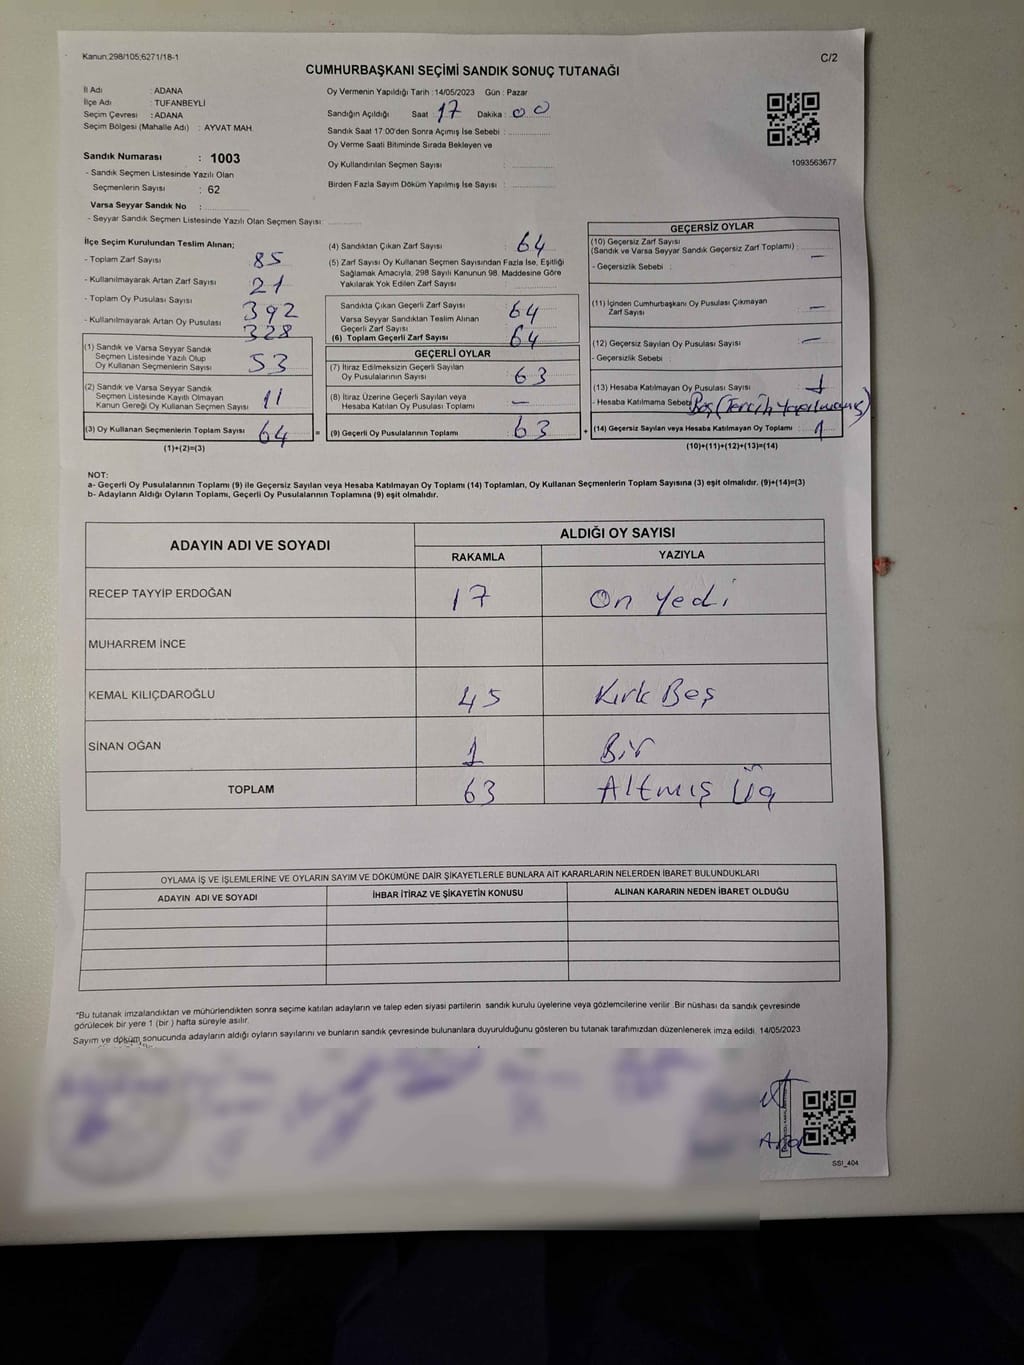 Kanun;298/105;6271/18-1
C/2
CUMHURBAŞKANI SEÇİMİ SANDIK SONUÇ TUTANAĞI
İl Adı : ADANA
İlçe Adı : TUFANBEYLİ
Seçim Çevresi : ADANA
Seçim Bölgesi (Mahalle Adı) : AYVAT MAH.
Oy Vermenin Yapıldığı Tarih :14/05/2023 Gün : Pazar
Sandığın Açıldığı Saat : 17 Dakika : 00
Sandık Saat 17.00'den Sonra Açımış İse Sebebi :
Oy Verme Saati Bitiminde Sırada Bekleyen ve
Oy Kullandırılan Seçmen Sayısı :
Birden Fazla Sayım Döküm Yapılmış İse Sayısı :
1093563677
Sandık Numarası : 1003
- Sandık Seçmen Listesinde Yazılı Olan
Seçmenlerin Sayısı : 62
Varsa Seyyar Sandık No :
- Seyyar Sandık Seçmen Listesinde Yazılı Olan Seçmen Sayısı:
İlçe Seçim Kurulundan Teslim Alınan;
- Toplam Zarf Sayısı : 85
- Kullanılmayarak Artan Zarf Sayısı : 21
- Toplam Oy Pusulası Sayısı : 392
- Kullanılmayarak Artan Oy Pusulası : 328
(1) Sandık ve Varsa Seyyar Sandık
Seçmen Listesinde Yazılı Olup
Oy Kullanan Seçmenlerin Sayısı : 53
(2) Sandık ve Varsa Seyyar Sandık
Seçmen Listesinde Kayıtlı Olmayan
Kanun Gereği Oy Kullanan Seçmen Sayısı : 11
(3) Oy Kullanan Seçmenlerin Toplam Sayısı : 64
(1)+(2)=(3)
(4) Sandıktan Çıkan Zarf Sayısı : 64
(5) Zarf Sayısı Oy Kullanan Seçmen Sayısından Fazla İse, Eşitliği
Sağlamak Amacıyla, 298 Sayılı Kanunun 98. Maddesine Göre
Yakılarak Yok Edilen Zarf Sayısı :
Sandıkta Çıkan Geçerli Zarf Sayısı : 64
Varsa Seyyar Sandıktan Teslim Alınan
Geçerli Zarf Sayısı :
(6) Toplam Geçerli Zarf Sayısı : 64
GEÇERLİ OYLAR
(7) İtiraz Edilmeksizin Geçerli Sayılan
Oy Pusulalarının Sayısı : 63
(8) İtiraz Üzerine Geçerli Sayılan veya
Hesaba Katılan Oy Pusulası Toplamı : —
= (9) Geçerli Oy Pusulalarının Toplamı : 63
GEÇERSİZ OYLAR
(10) Geçersiz Zarf Sayısı
(Sandık ve Varsa Seyyar Sandık Geçersiz Zarf Toplamı) : —
- Geçersizlik Sebebi :
(11) İçinden Cumhurbaşkanı Oy Pusulası Çıkmayan
Zarf Sayısı : —
(12) Geçersiz Sayılan Oy Pusulası Sayısı : —
- Geçersizlik Sebebi :
(13) Hesaba Katılmayan Oy Pusulası Sayısı : 1
- Hesaba Katılmama Sebebi Boş (Tercih Yapılmamış)
+ (14) Geçersiz Sayılan veya Hesaba Katılmayan Oy Toplamı : 1
(10)+(11)+(12)+(13)=(14)
NOT:
a- Geçerli Oy Pusulalarının Toplamı (9) ile Geçersiz Sayılan veya Hesaba Katılmayan Oy Toplamı (14) Toplamları, Oy Kullanan Seçmenlerin Toplam Sayısına (3) eşit olmalıdır. (9)+(14)=(3)
b- Adayların Aldığı Oyların Toplamı, Geçerli Oy Pusulalarının Toplamına (9) eşit olmalıdır.
ADAYIN ADI VE SOYADI ALDIĞI OY SAYISI
RAKAMLA YAZIYLA
RECEP TAYYİP ERDOĞAN 17 On Yedi
MUHARREM İNCE
KEMAL KILIÇDAROĞLU 45 Kırk Beş
SİNAN OĞAN 1 Bir
TOPLAM 63 Altmış Üç
OYLAMA İŞ VE İŞLEMLERİNE VE OYLARIN SAYIM VE DÖKÜMÜNE DAİR ŞİKAYETLERLE BUNLARA AİT KARARLARIN NELERDEN İBARET BULUNDUKLARI
ADAYIN ADI VE SOYADI İHBAR İTİRAZ VE ŞİKAYETİN KONUSU ALINAN KARARIN NEDEN İBARET OLDUĞU
*Bu tutanak imzalandıktan ve mühürlendikten sonra seçime katılan adayların ve talep eden siyasi partilerin sandık kurulu üyelerine veya gözlemcilerine verilir .Bir nüshası da sandık çevresinde
görülecek bir yere 1 (bir ) hafta süreyle asılır.
Sayım ve döküm sonucunda adayların aldığı oyların sayılarını ve bunların sandık çevresinde bulunanlara duyurulduğunu gösteren bu tutanak tarafımızdan düzenlenerek imza edildi. 14/05/2023
SSI_404